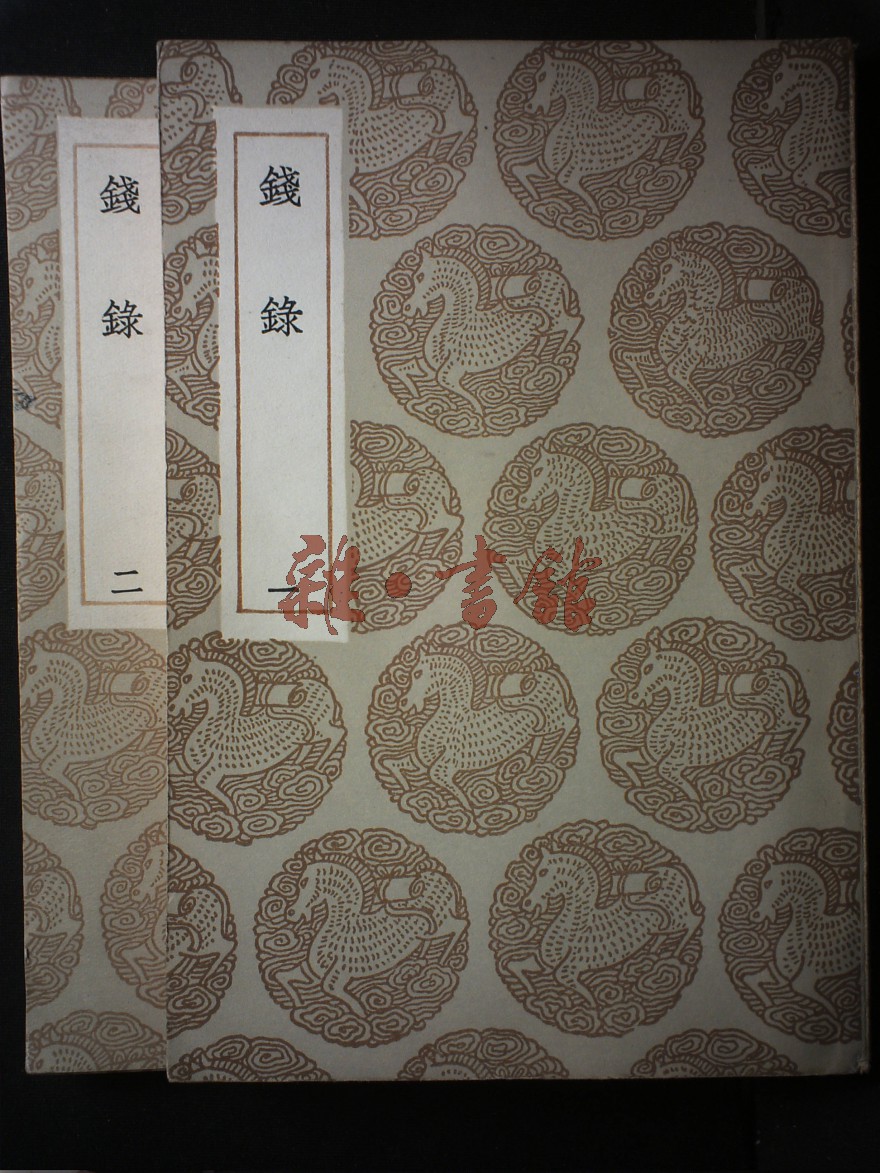 錢錄
一
錢錄
二
雜·書館